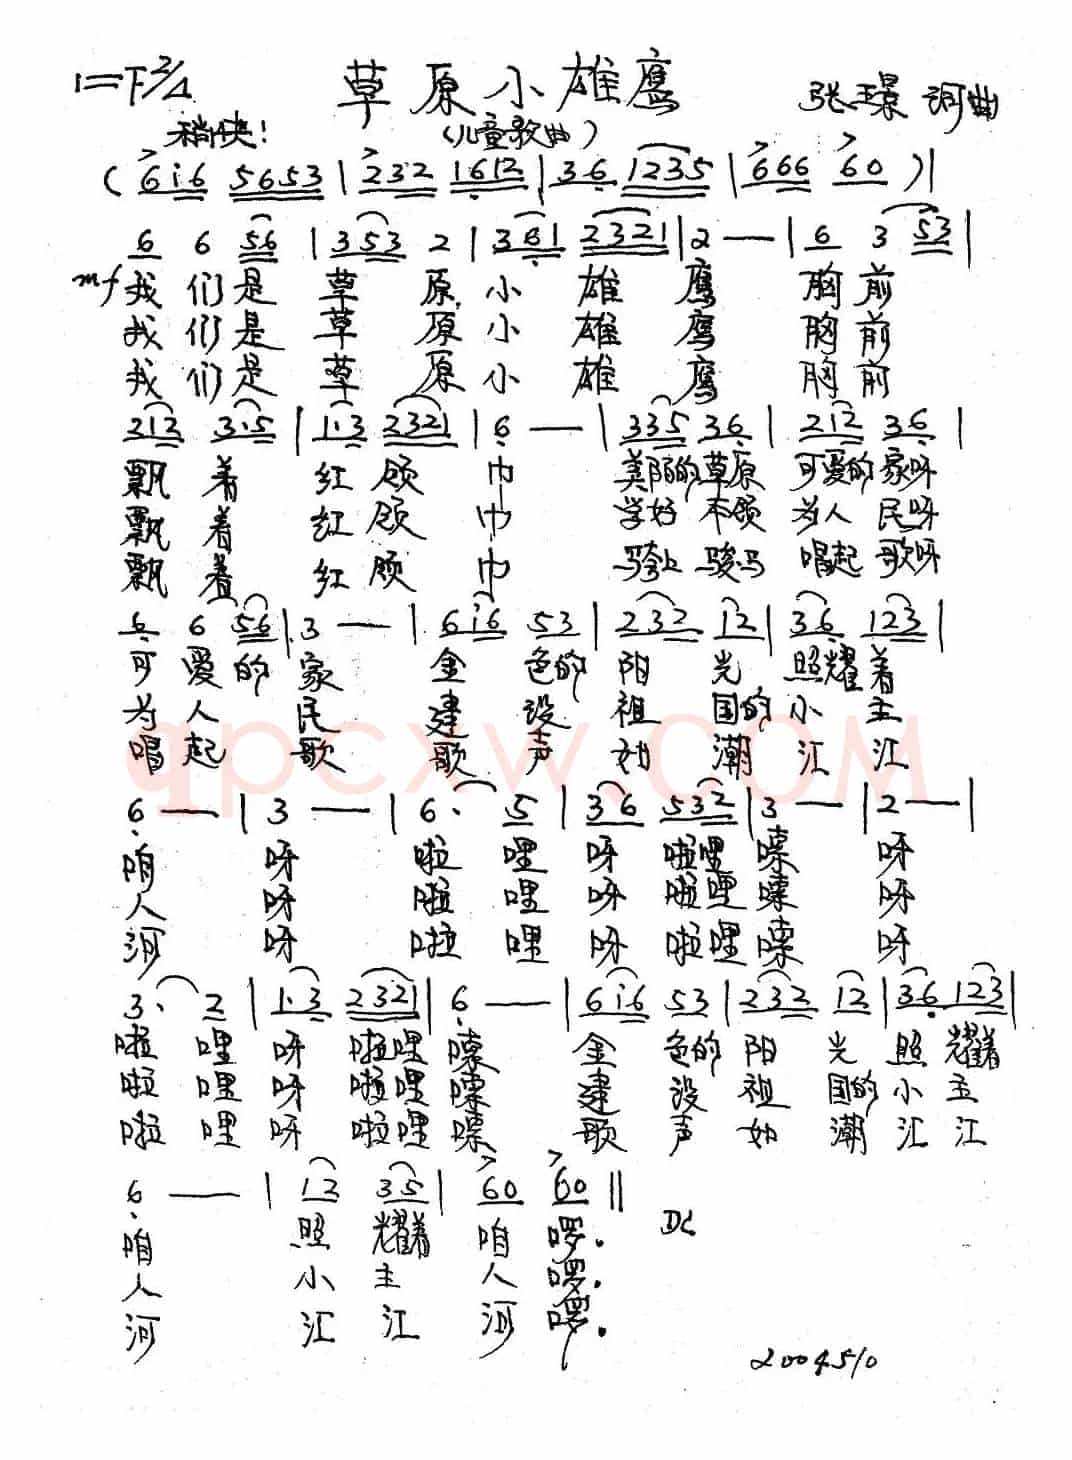 1=F 2/4 草原小雄鹰 张玉景 词曲
稍快! (儿童歌曲)
( 6i6 5653 | 232 1612 | 36 1235 | 666 60 ) |
6 6 56 | 353 2 | 361 2321 | 2 — | 6 3 53 |
mf 我们是 草原 小雄鹰 胸前
我们是 草原 小雄鹰 胸前
我们是 草原 小雄鹰 胸前
212 3·5 | 1·3 2321 | 6 — | 335 36 | 212 36 |
飘着 红领巾 美丽的草原 可爱的家呀
飘着 红领巾 学好本领 为人民呀
飘着 红领巾 骑上骏马 唱起歌呀
6 6 56 | 3 — | 6i6 53 | 232 12 | 36 123 |
可爱的家 金色的阳光 照耀着
为人民 建设祖国的小主
唱起歌 歌声如潮汇江
6 — | 3 — | 6· 5 | 36 532 | 3 — | 2 — |
咱呀 啦哩呀啦哩嗦呀
人呀 啦哩呀啦哩嗦呀
河呀 啦哩呀啦哩嗦呀
3· 2 | 1·3 2321 | 6 — | 6i6 53 | 232 12 | 36 123 |
啦哩呀啦哩嗦 金色的阳光 照耀着
啦哩呀啦哩嗦 建设祖国的小主
啦哩呀啦哩嗦 歌声如潮汇江
6 — | 12 35 | 60 60 ‖
咱 照耀着咱啰. D.C.
人 小主人啰.
河 汇江河啰.
2004.5/10
qpcxw.COM